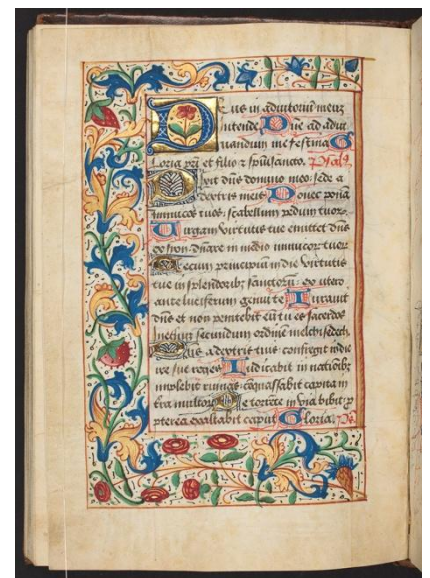 Deus in adiutoriu meuz
intende Dne ad adiu
uandum me festina G
Loria pri et filio z spui sancto. Psal9
Dixit dns domino meo: sede a
dextris meis Donec pona
inimicos tuos: scabellum pedum tuorz
Uirgam virtutis tue emittet dns
ex sion: dnare in medio inimicor tuor
Tecum principiu in die virtutis
tue in splendorib; sanctoru: ex utero
ante luciferum genui te Iurauit
dns et non penitebit eu tu es sacerdos
in eternu secundum ordine melchisedech
Dns a dextris tuis confregit in die
ire sue reges Iudicabit in natioib;
implebit ruinas: coquassabit capita in
tra multorz De torrete in via bibit: p
pterea exaltabit caput Gloria. Ps.